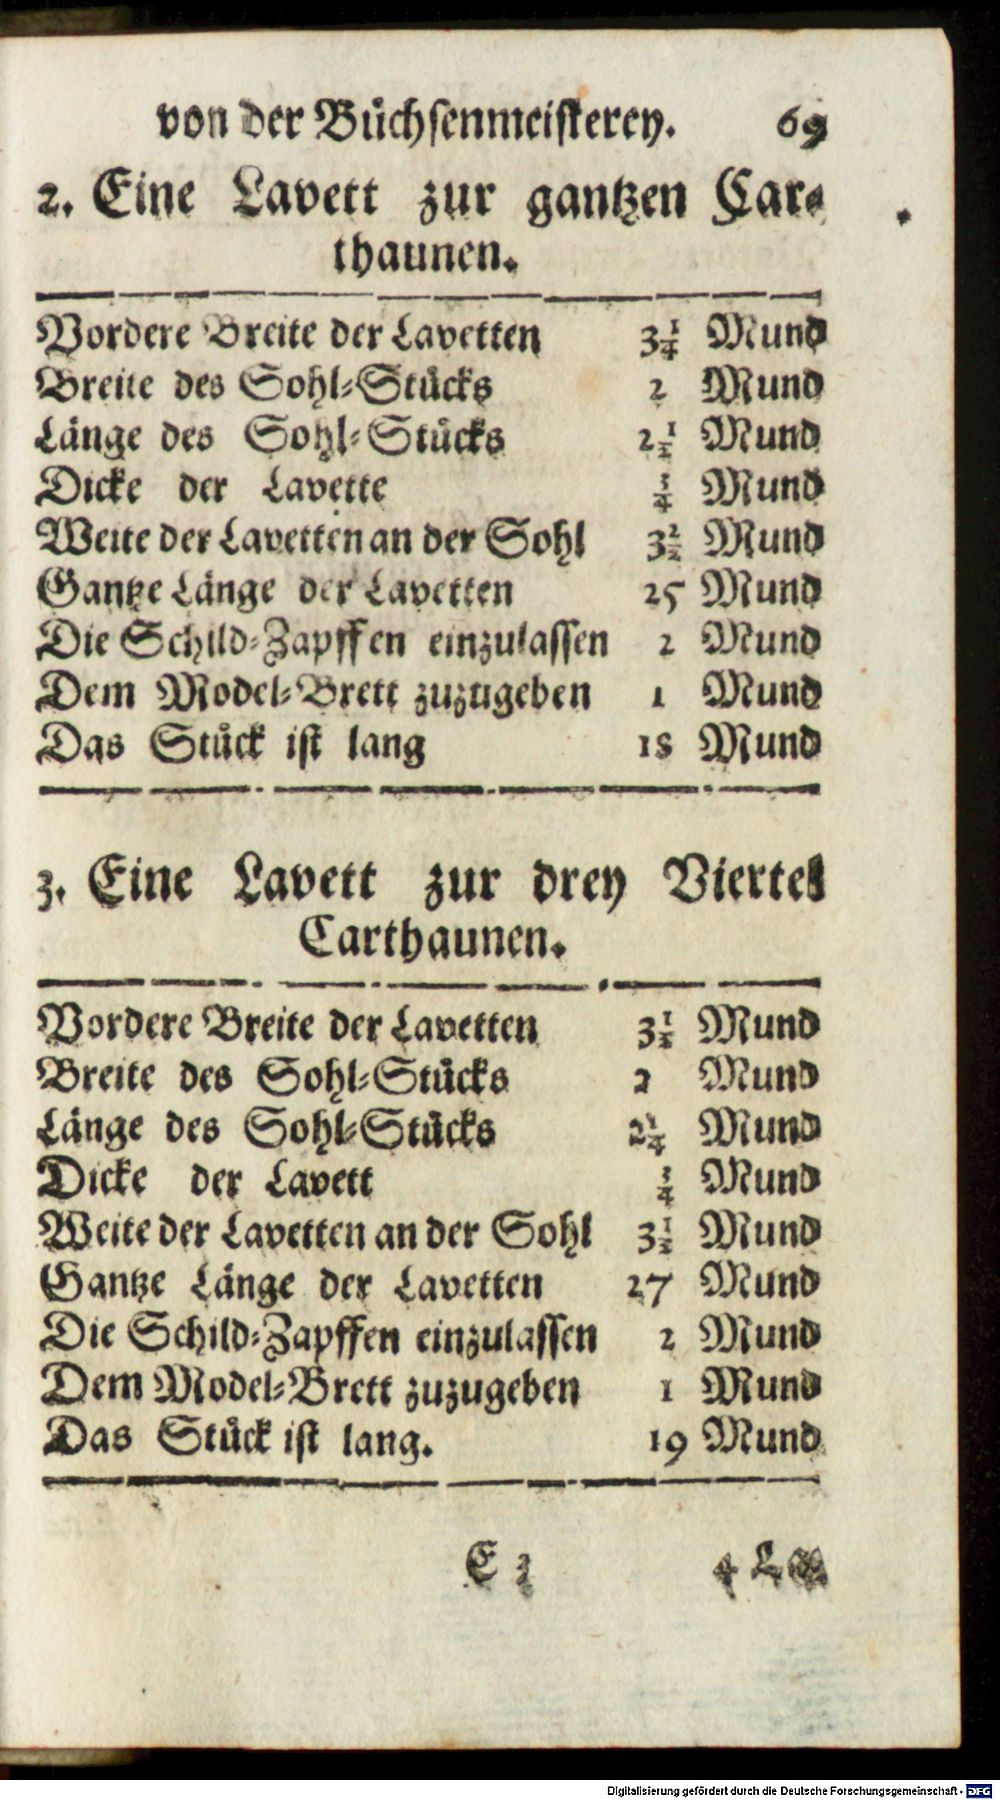 von der Büchsenmeisterey. 69
2. Eine Lavett zur gantzen Car-
thaunen.
Vordere Breite der Lavetten 3 1/4 Mund
Breite des Sohl-Stücks 2 Mund
Länge des Sohl-Stücks 2 1/2 Mund
Dicke der Lavette 3/4 Mund
Weite der Lavetten an der Sohl 3 1/2 Mund
Gantze Länge der Lavetten 25 Mund
Die Schild-Zapffen einzulassen 2 Mund
Dem Model-Brett zuzugeben 1 Mund
Das Stück ist lang 18 Mund
3. Eine Lavett zur drey Viertel
Carthaunen.
Vordere Breite der Lavetten 3 1/2 Mund
Breite des Sohl-Stücks 2 Mund
Länge des Sohl-Stücks 2 1/4 Mund
Dicke der Lavett 3/4 Mund
Weite der Lavetten an der Sohl 3 1/2 Mund
Gantze Länge der Lavetten 27 Mund
Die Schild-Zapffen einzulassen 2 Mund
Dem Model-Brett zuzugeben 1 Mund
Das Stück ist lang. 19 Mund
E 3
Digitalisierung gefördert durch die Deutsche Forschungsgemeinschaft - DFG